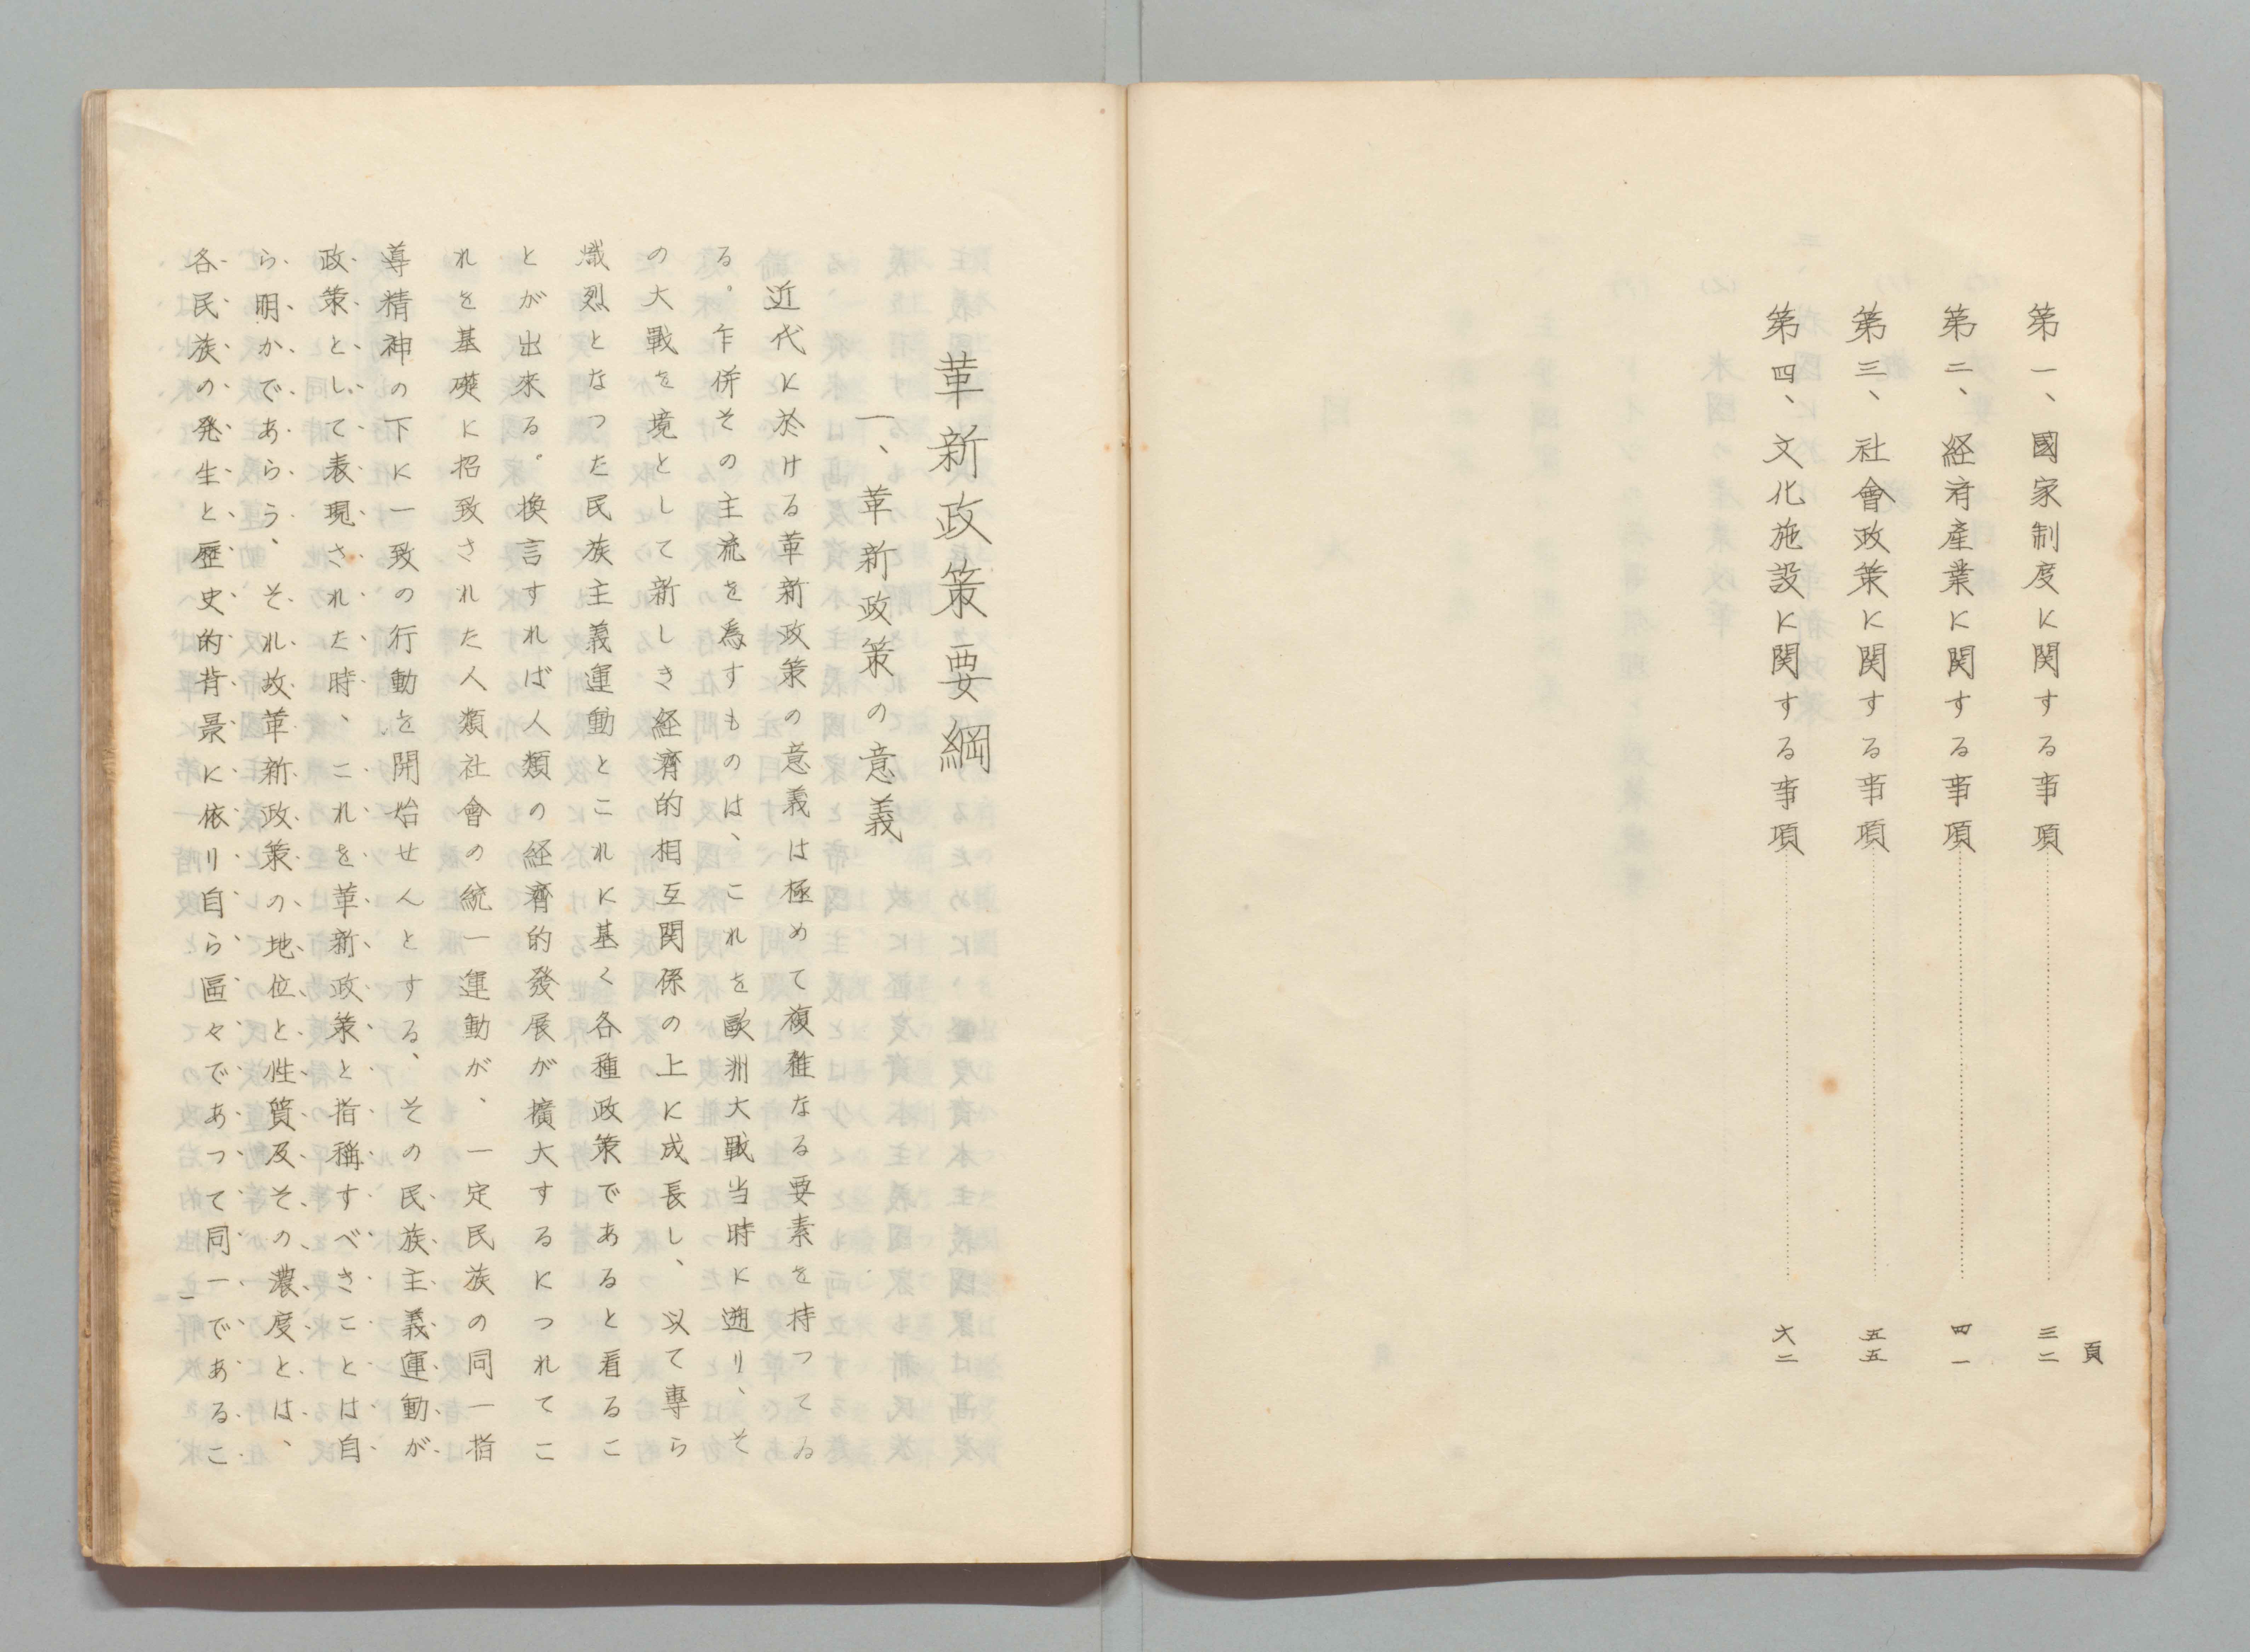 頁
第一、國家制度に関する事項……………三二
第二、経済產業に関する事項……………四一
第三、社會政策に関する事項……………五五
第四、文化施設に関する事項……………六二
革新政策要綱
一、革新政策の意義
近代に於ける革新政策の意義は極めて複雑なる要素を持つてゐ
る。乍併その主流を爲すものは、これを歐洲大戰当時に遡り、そ
の大戰を境として新しき経濟的相互関係の上に成長し、以て專ら
熾烈となつた民族主義運動とこれに基く各種政策であると看るこ
とが出来る。換言すれば人類の経濟的發展が擴大するにつれてこ
れを基礎に招致された人類社會の統一運動が、一定民族の同一指
導精神の下に一致の行動を開始せんとする、その民族主義運動が
政策として表現された時、これを革新政策と指稱すべきことは自
ら明かであらう、それ故革新政策の地位と性質及その濃度とは、
各民族の発生と歴史的背景に依り自ら區々であつて同一であるこ
一